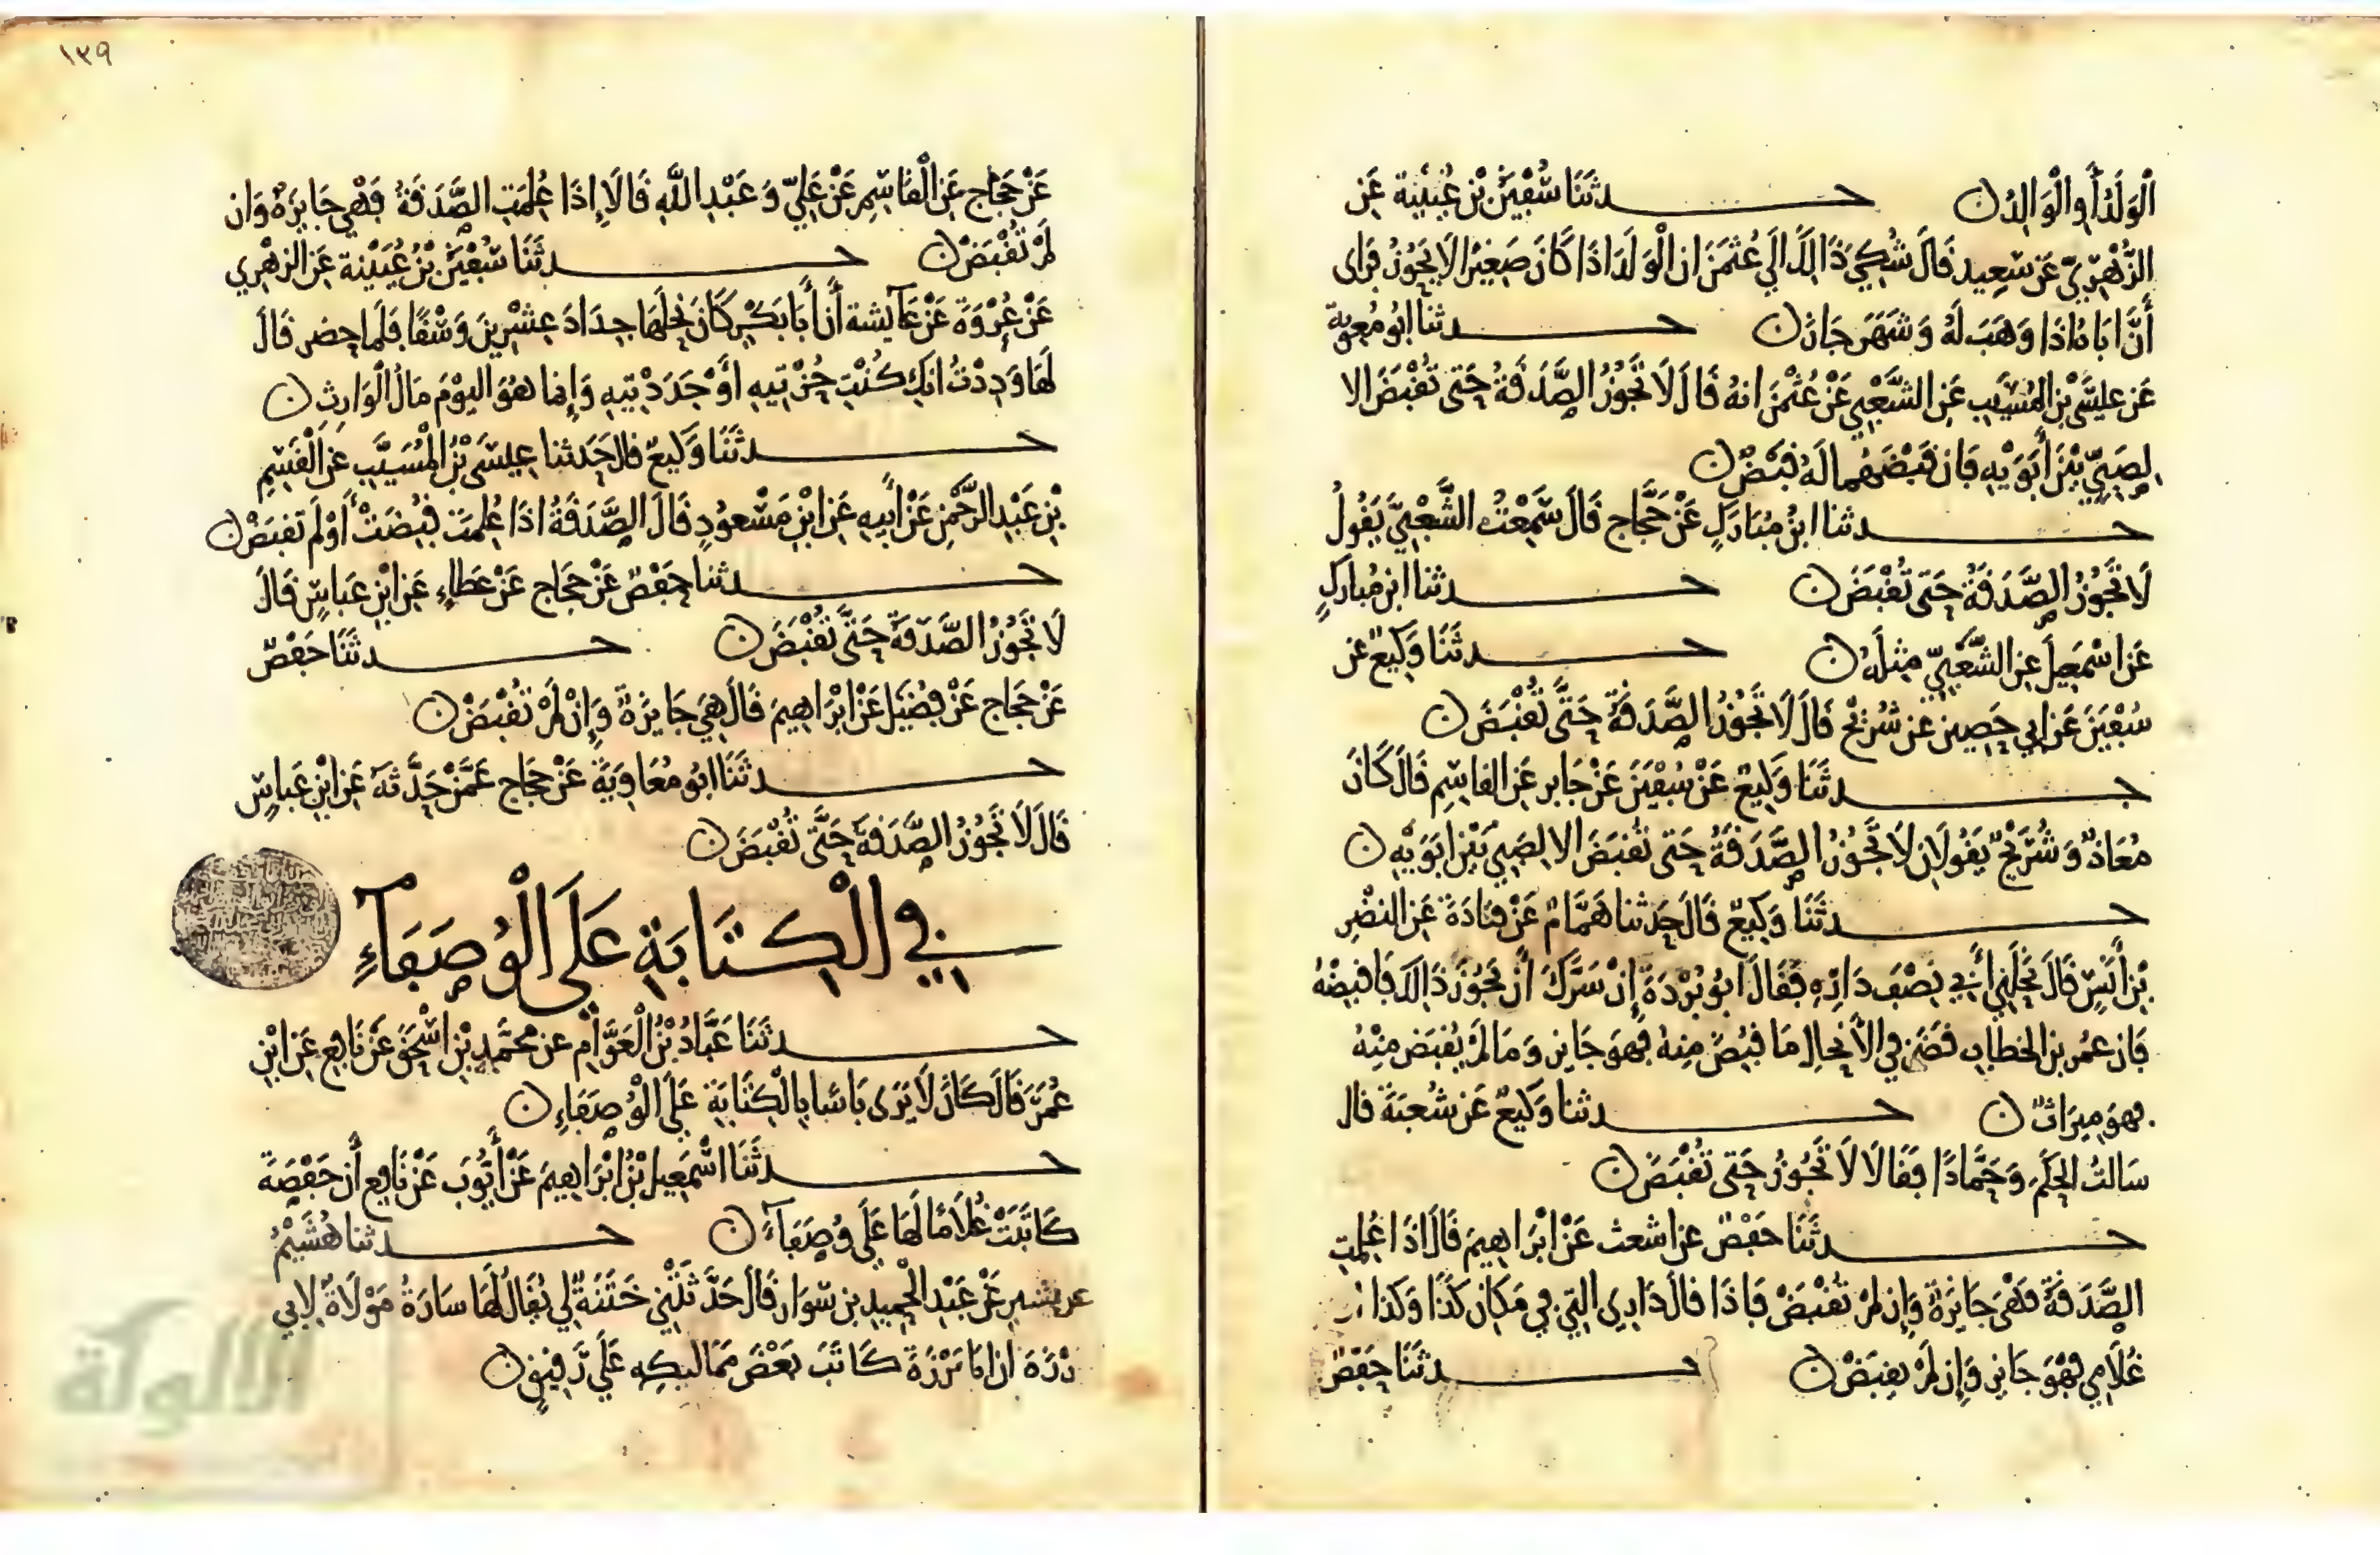 الْوَلَدُ أَوِ الْوَالِدُ ن حـــدثَنَا سُفْيَنُ بْنُ عُيَيْنة عَنِ
الزُّهْرِيِّ عَن سَعِيد قَالَ شُكِيَ ذَالِكَ الَى عُثمَنَ ان الْوَلَدَ اذَا كَانَ صَغِيرًا لَا يَجُوزُ فرَأى
أَنَّ ابَاهُ اذَا وَهَبَ لَهُ وَشَهَرَ جَازَ ن حـــدثنا ابُو مُعوية
عَن عيسَى بْنِ المُسَيَّبِ عَنِ الشَّعْبِي عَنْ عُثْمَنَ انهُ قَالَ لَا تَجُوزُ الصَّدَقَةُ حَتى تُقْبَضَ الا
لِصَبِيّ بَيْنَ أَبَوَيْهِ فَان قَبْضَهُمَا لَهُ قَبْضٌ ن
حـــدثنا ابْنُ مُبَارَكٍ عَنْ حَجَّاج قَالَ سَمِعْتُ الشَّعْبِيَّ يَقُولُ
لَا تَجُوزُ الصَّدَقَةُ حَتى تُقْبَضَ ن حـــدثنا ابن مُبَارَكٍ
عَنِ اسْمَعِيلَ عنِ الشَّعْبِيّ مِثلَهُ ن حـــدثَنَا وَكِيعٌ عَن
سُفْيَنَ عَن ابي حَصِينٍ عَن شُرَيْح قَالَ لَا تَجُوزُ الصَّدَقَةُ حَتَّى تُقْبَضَ ن
حـــدثَنَا وَكِيعٌ عَنْ سُفْيَنَ عَنْ جَابر عَنِ القاسِمِ قَالَ كَانَ
مُعَاذٌ وَشُرَيْحٌ يَقُولَانِ لَا تَجُوزُ الصَّدَقَةُ حَتى تُقبَضَ الا لِصَبِي بَيْنَ ابَوَيْهِ ن
حـــدثَنَا وَكِيعٌ قَالَ حَدثنا هَمَّامٌ عَنْ قتَادَةَ عَنِ النضْرِ
بْنِ أَنَسٍ قَالَ نَحَلَنِي أَبِي نِصْفَ دَارِهِ فَقَالَ ابُو بُرْدَةَ إِنْ سَرَّكَ أَنْ تَجُوزَ ذَالِكَ فَاقبِضْهُ
فَان عمُرَ بن الخطابِ قَضَى في الأَنْحَالِ مَا قُبِضَ مِنهُ فهوَ جَايِز وَمَا لَمْ يُقبَض مِنْهُ
فهوَ مِيرَاثٌ ن حـــدثنا وَكِيعٌ عَن شُعبَةَ قال
سَالتُ الحَكَمَ وَحَمَّادًا فَقَالَا لَا تَجُوزُ حَتى تُقْبَضَ ن
حـــدثَنَا حَفْصٌ عن اشعث عَنْ ابْرَاهِيمَ قَالَ اذَا عُلِمَتِ
الصَّدَقَةُ فَهْيَ جَايزَةٌ وَإِن لَمْ تُقْبَضْ فَاذَا قالَ دَارِي التِي فِي مَكَانِ كَذَا وَكَذا
غُلَامِي فَهُوَ جَايز وَإِن لَمْ يقبَضْ ن حـــدثَنَا حَفصٌ
١٣٩
عَنْ حَجَّاج عَنِ الْقَاسِمِ عَنْ عَلِيّ وَ عَبْدِ اللَّهِ قَالَا إِذَا عُلِمَتِ الصَّدَقَةُ فَهْيَ جَايزَةٌ وَان
لَمْ تُقْبَضْ ن حـــدثَنَا سُفْيَنُ بْنُ عُيَيْنة عَنِ الزهْرِي
عَنْ عُرْوَةَ عَنْ عَآئِشة أَن أَبَا بَكْرٍ كَانَ نَحَلَهَا جِدَادَ عِشْرِينَ وَسْقًا فَلَما حضر قَالَ
لَهَا وَدِدْتُ انكِ كُنْتِ حُزْتِيهِ اوْ جَدَدْتِيهِ وَإِنما هُوَ اليَوْمَ مَالُ الْوَارِثِ ن
حـــدثَنَا وَكِيعٌ قال حَدثنا عِيسَى بْنُ الْمُسَيَّبِ عنِ القَسِمِ
بْنِ عَبْدِ الرَّحْمنِ عَنْ أَبِيهِ عَنِ ابْنِ مَسْعُودٍ قَالَ الصَّدَقَةُ اذَا عُلِمَتْ قُبِضَتْ أَوْ لَمْ تُقبَضْ ن
حـــدثنا حَفْصٌ عَنْ حَجَاج عَنْ عَطَاءٍ عَنِ ابْنِ عَبَاسٍ قَالَ
لَا تَجُوزُ الصَّدَقَةُ حَتَّى تُقْبَضَ ن حـــدثَنَا حَفْصٌ
عَنْ حَجَاج عَنْ فُضَيْل عَنْ ابْرَاهِيمَ قَالَ هِيَ جَايزَةٌ وَإِنْ لَمْ تُقْبَضْ ن
حـــدثَنَا ابُو مُعَاوِيَةَ عَنْ حَجَاج عَمَّنْ حَدَّثهُ عَنِ ابْنِ عَبَاسٍ
قَالَ لَا تَجُوزُ الصَّدَقَةُ حَتَّى تُقْبَضَ ن
فِي الْكِتَابَةِ عَلَى الْوُصَفَآءِ
حـــدثَنَا عَبَّادُ بْنُ الْعَوَّامِ عن مُحَمَّدِ بْنِ اسْحَقَ عَنْ نَافِع عَنِ ابْنِ
عُمَرَ قَالَ كَانَ لَا يَرَى بَاسًا بِالْكِتَابَةِ عَلَى الْوُصَفَاءِ ن
حـــدثَنَا اسْمَعِيلُ بْنُ ابْرَاهِيمَ عَنْ أَيُّوبَ عَنْ نَافِع أَن حَفْصَةَ
كَاتَبَتْ غُلَامًا لَهَا عَلَى وُصَفَآءَ ن حـــدثنا هُشَيْمٌ
عَنْ عَبْدِ الْحَمِيدِ بن سَوَار قَالَ حَدَّثَتْنِي خَتَنَةٌ لِي يُقَالُ لَهَا سَارَةُ مَوْلَاةٌ لِابِي
بَرْزَةَ ان ابَا بَرْزَةَ كَاتَبَ بَعْضَ مَمَاليكِهِ عَلَى رَقِيقٍ ن
الألوكة